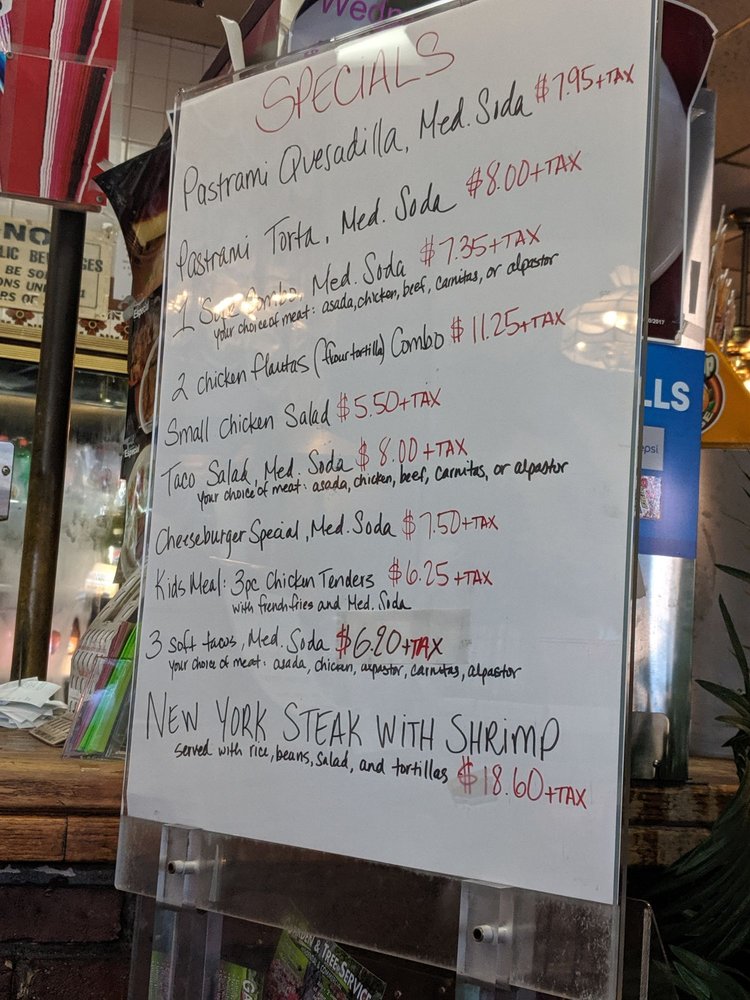 Wedn
SPECIALS
Pastrami Quesadilla, Med. Soda $7.95+TAX
Pastrami Torta, Med. Soda $8.00+TAX
1 Combo, Med. Soda $7.35+TAX
Your choice of meat: asada, chicken, beef, carnitas, or alpastor
2 chicken flautas (flour tortilla) Combo $11.25+TAX
Small Chicken Salad $5.50+TAX
Taco Salad, Med. Soda $8.00+TAX
Your choice of meat: asada, chicken, beef, carnitas, or alpastor
Cheeseburger Special, Med. Soda $7.50+TAX
Kids Meal: 3pc Chicken Tenders $6.25+TAX
with french fries and Med. Soda
3 Soft tacos, Med. Soda $6.20+TAX
Your choice of meat: asada, chicken, carnitas, alpastor
NEW YORK STEAK WITH SHRIMP
Served with rice, beans, salad, and tortillas $18.60+TAX
NO
LIC BEVERAGES
BE SO
IONS UN
RS OF
LLS
epsi
& TREE SERVICE